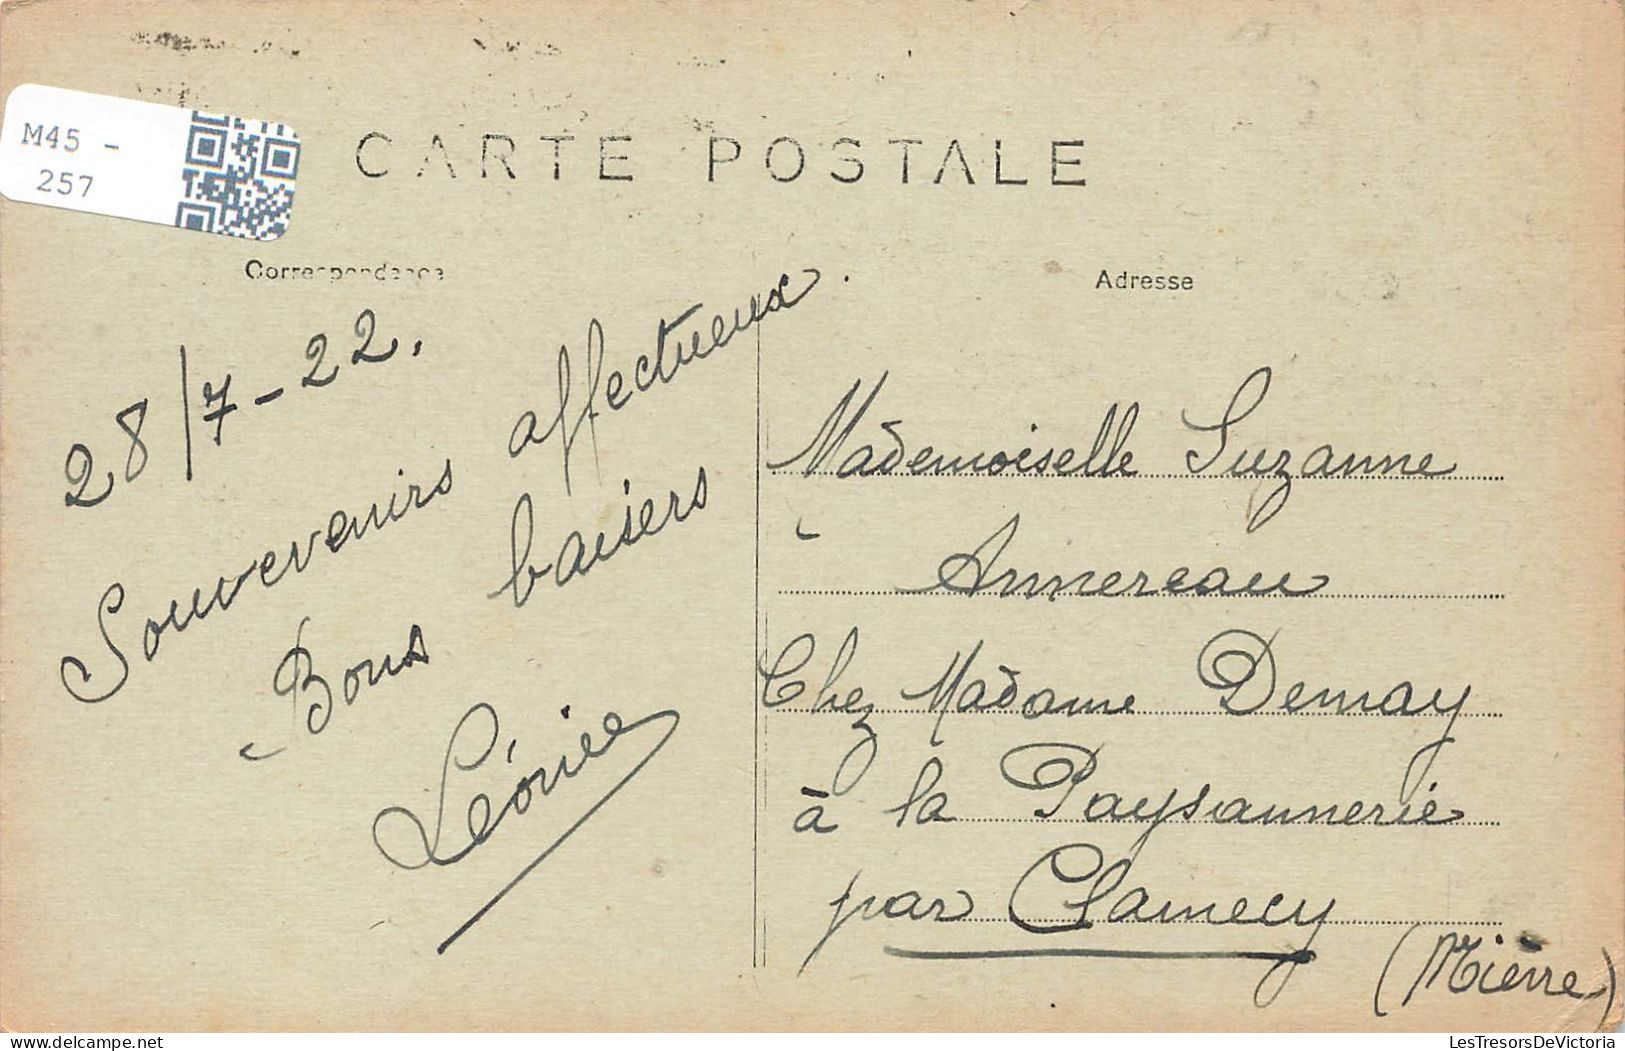 M45 -
257
CARTE POSTALE
Correspondance
Adresse
28/7-22.
Souvevenirs affectueux.
Bons baisers
Léonie
Mademoiselle Suzanne
Annereau
Chez Madame Demay
à la Paysannerie
par Clamecy
(Nièvre)
LesTresorsDeVictoria